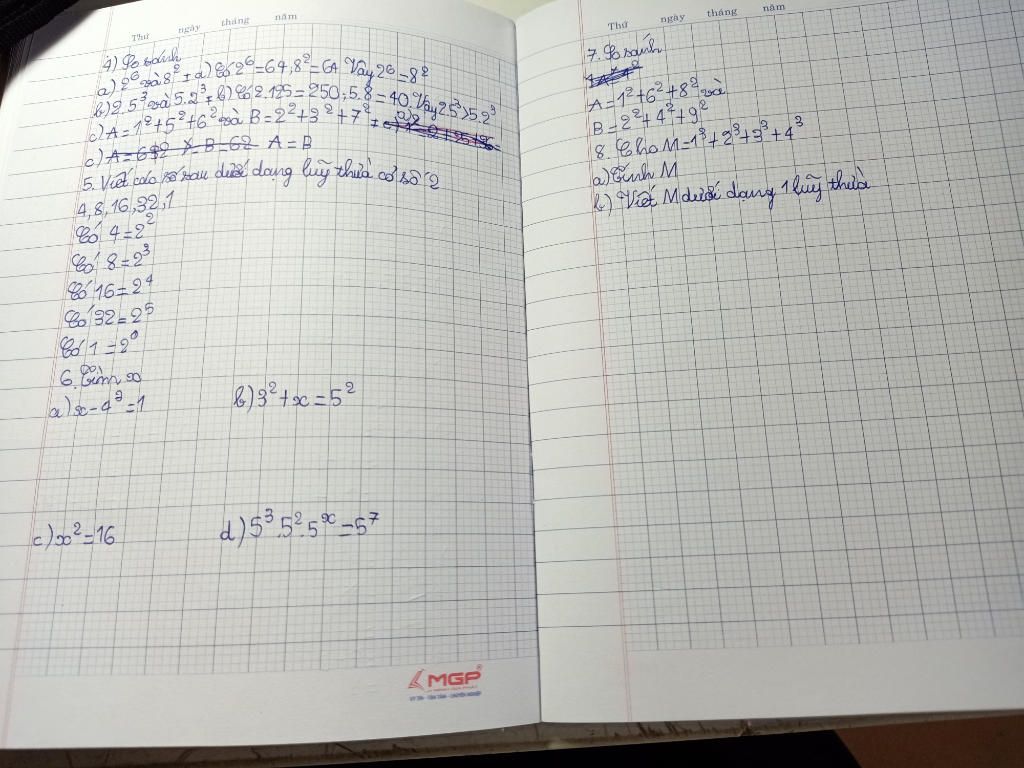 Thứ ngày tháng năm
4) So sánh
a) 2⁶ và 8² : a) Có 2⁶ = 64, 8² = 64 Vậy 2⁶ = 8²
b) 2.5³ và 5.2³ : b) Có 2.125 = 250, 5.8 = 40. Vậy 2.5³ > 5.2³
c) A = 1² + 5² + 6² và B = 2² + 3² + 7² :
c) A = B
5. Viết các số sau dưới dạng luỹ thừa cơ số 2
4, 8, 16, 32, 1
Có 4 = 2²
Có 8 = 2³
Có 16 = 2⁴
Có 32 = 2⁵
Có 1 = 2⁰
6. Tìm x
a) x - 4³ = 1 b) 3² + x = 5²
c) x² = 16 d) 5³.5².5ˣ = 5⁷
MGP
Thứ ngày tháng năm
7. So sánh
A = 1² + 6² + 8² và
B = 2² + 4² + 9²
8. Cho M = 1³ + 2³ + 3³ + 4³
a) Tính M
b) Viết M dưới dạng 1 luỹ thừa